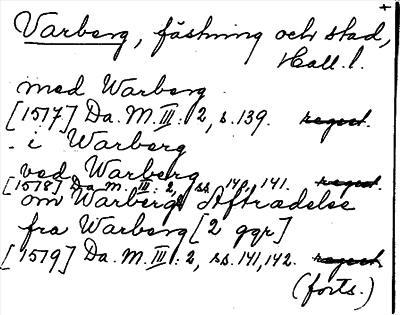 +
Varberg, fästning och stad,
Hall. l.
med Warberg.
[1517] Da. M. III: 2, s. 139. regest.
i Warberg
ved Warberg
[1518] Da. M. III: 2, ss. 141, 141. regest.
om Wārbergs Aftrædelse
fra Warberg [2 ggr]
[1519] Da. M. III: 2, ss. 141, 142. regest.
(forts.)